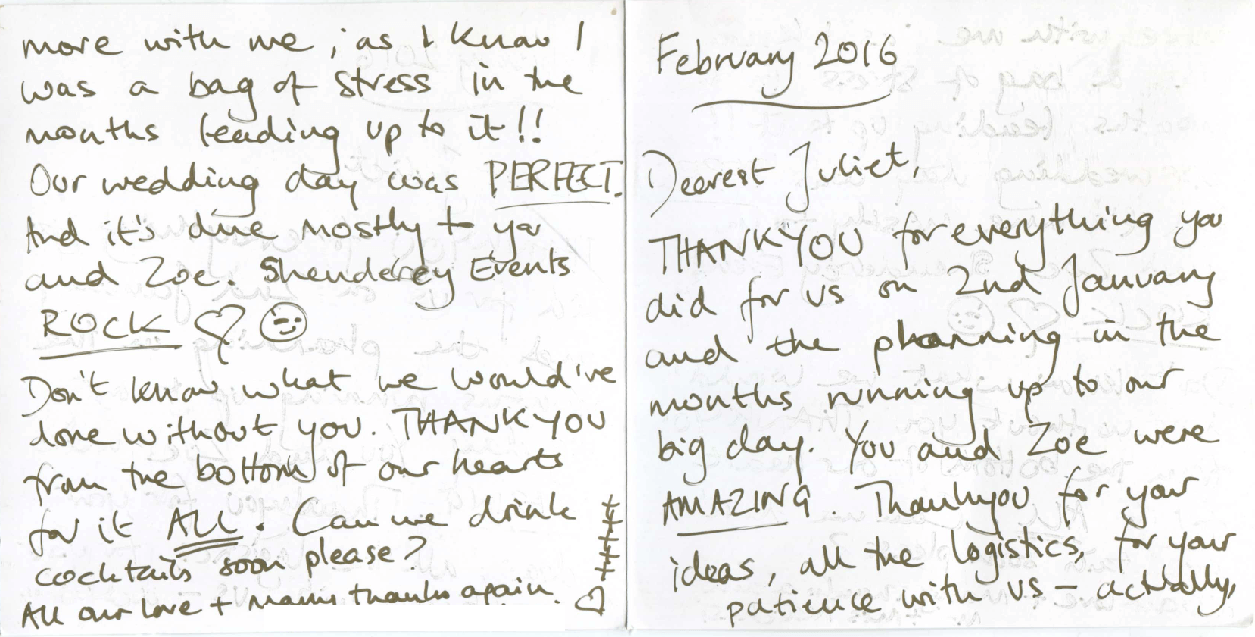 February 2016
Dearest Juliet,
THANKYOU for everything you
did for us on 2nd January
and the planning in the
months running up to our
big day. You and Zoe were
AMAZING. Thankyou for your
ideas, all the logistics, for your
patience with us – actually,
more with me, as I know I
was a bag of stress in the
months leading up to it!!
Our wedding day was PERFECT.
And it's due mostly to you
and Zoe. Shenderey Events
ROCK ♡ ☺
Don't know what we would've
done without you. THANKYOU
from the bottom of our hearts
for it ALL. Can we drink
cocktails soon please?
All our love + many thanks again. ♡